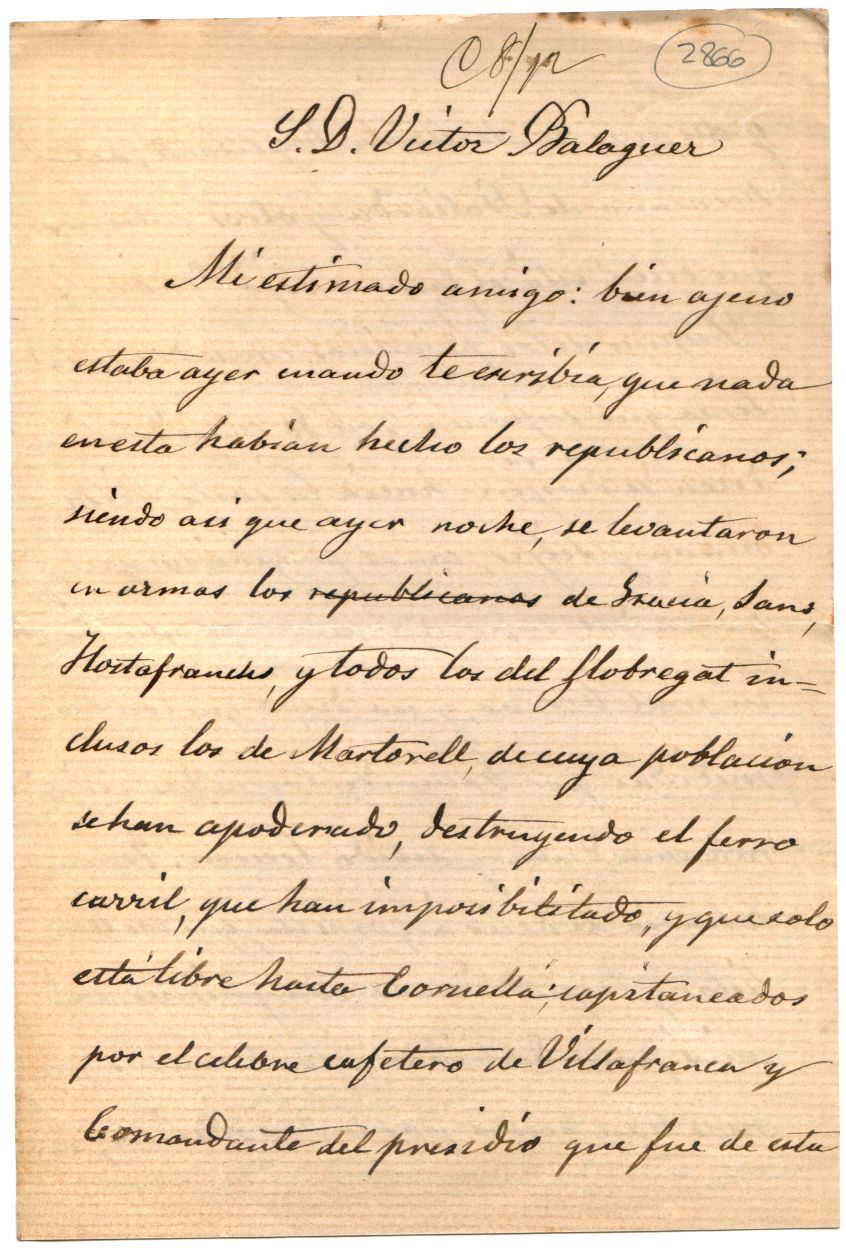 C 8/12
2866
S. D. Victor Balaguer
Mi estimado amigo: bien ageno
estaba ayer cuando te escribia, que nada
en esta habian hecho los republicanos;
siendo asi que ayer noche, se levantaron
en armas los republicanos de Gracia, Sans,
Hostafranchs, y todos los del Llobregat in-
clusos los de Martorell, de cuya poblacion
se han apoderado, destruyendo el ferro
carril, que han imposibilitado, y que solo
está libre hasta Cornellá; capitaneados
por el celebre cafetero de Villafranca y
Comandante del presidio que fue de esta